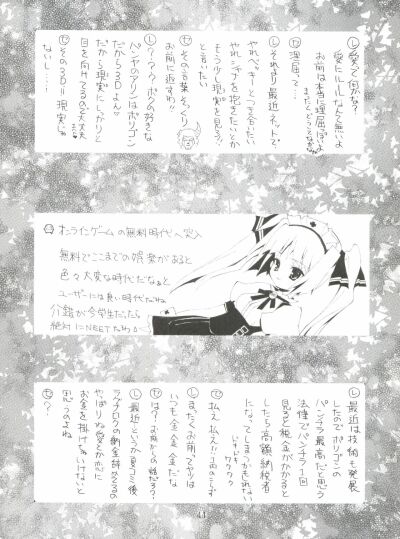 し 愛で固かな?
愛にルールなんて無いよ
せ お前は本当に理屈っぽいよ
まったくどこっこで
理屈って…
し それより最近ネットで、
やれベッキーとつき合いたい
やれシャナを抱きたいとか
もう少し現実を見ろ!!
と言いたい
せ その言葉そっくり
お前に返すわ!!
し ?ククク ボクの好きな
パンヤのアリンはポリゴン
だから3Dよん
だから現実にしっかりと
目を向けてるので大丈夫
せ その3D=現実じゃ
ないし……
三 オンラインゲームの無料時代へ突入
無料でここまでの娯楽があると
色々大変な時代だなぁと
ユーザーには良い時代だね
介錯が今学生だったら
絶対にNEETだわ
し 最近は技術も発展
したのでポリゴンの
パンチラ最高だと思う
法律でパンチラ1回
見ると税金がかかると
したら高額納税者
になってしまうかもれない
ドキドキ
ワクワク
せ 払え 払え!!
し まったくお前ってヤツは
いつも金金金だな
せ は?お前からの話だろ?
し 最近というか夏コミ後
ラグナロクの納金辞めてるの
やっぱりね愛とか恋に
お金を掛けちゃいけないと
思うのよね
せ ?
43